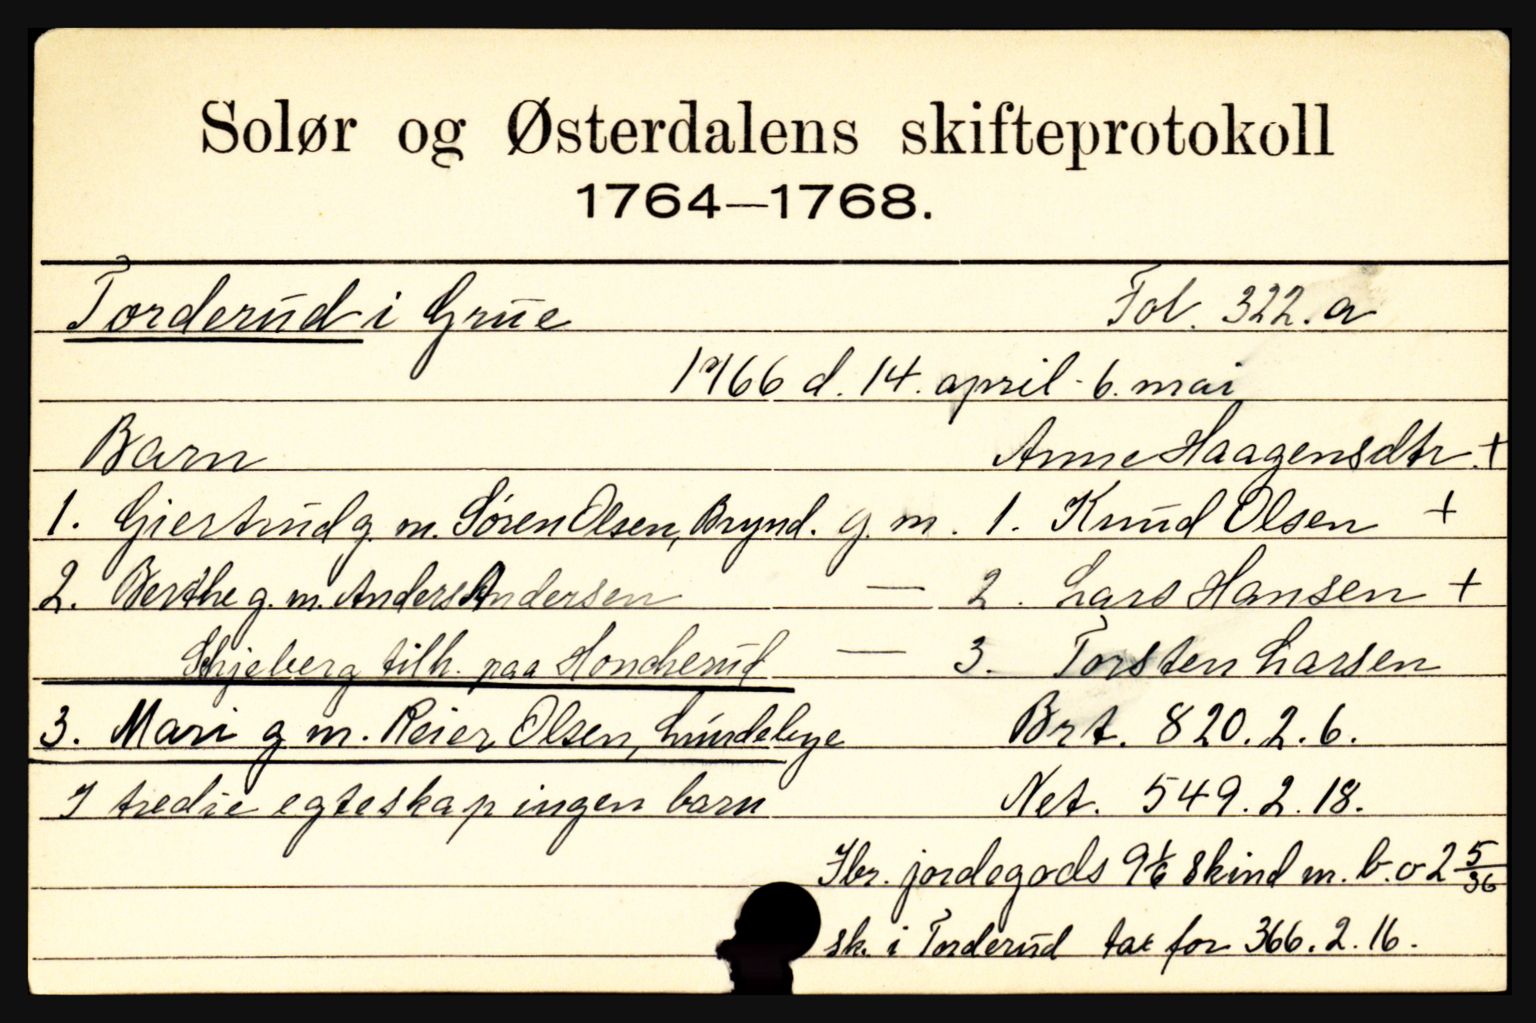 Solør og Østerdalens skifteprotokoll
1764—1768.
Torderud i Grue Fol. 322. a
1766 d. 14. april - 6. mai
Barn Anne Haagensdtr. +
1. Giertrud g. m. Søren Olsen, Brynd. g. m. 1. Knud Olsen +
2. Berthe g. m. Anders Andersen — 2. Lars Hansen +
Skjeberg tilh. paa Honcherud — 3. Torsten Larsen
3. Mari g m. Reier Olsen, Lundebye Brt. 820. 2. 6.
I tredie egteskap ingen barn Net. 549. 2. 18.
Ibr. jordegods 9 1/6 skind m. b. o 2 5/36
sk. i Torderud tax for 366. 2. 16.